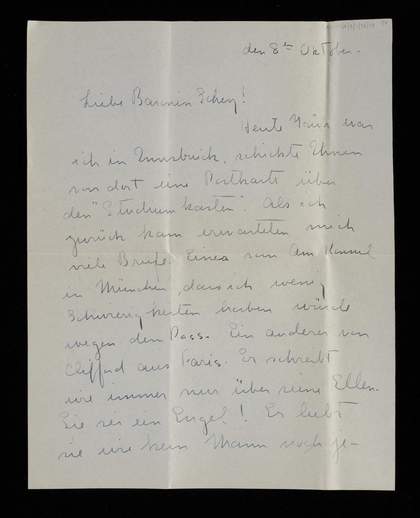 den 8ten Oktober.
Liebe Baronin Schey!
Heute früh war
ich in Innsbruck, schickte Ihnen
von dort eine Postkarte über
den "Studiumkasten". Als ich
zurück kam erwarteten mich
viele Briefe. Eines vom Am. Konsul
in München, dass ich wenig
Schwierigkeiten haben würde
wegen dem Pass. Ein anderer von
Clifford aus Paris. Er schreibt
wie immer nur über seine Ellen.
Sie sei ein Engel! Er liebt
sie wie kein Mann noch je-